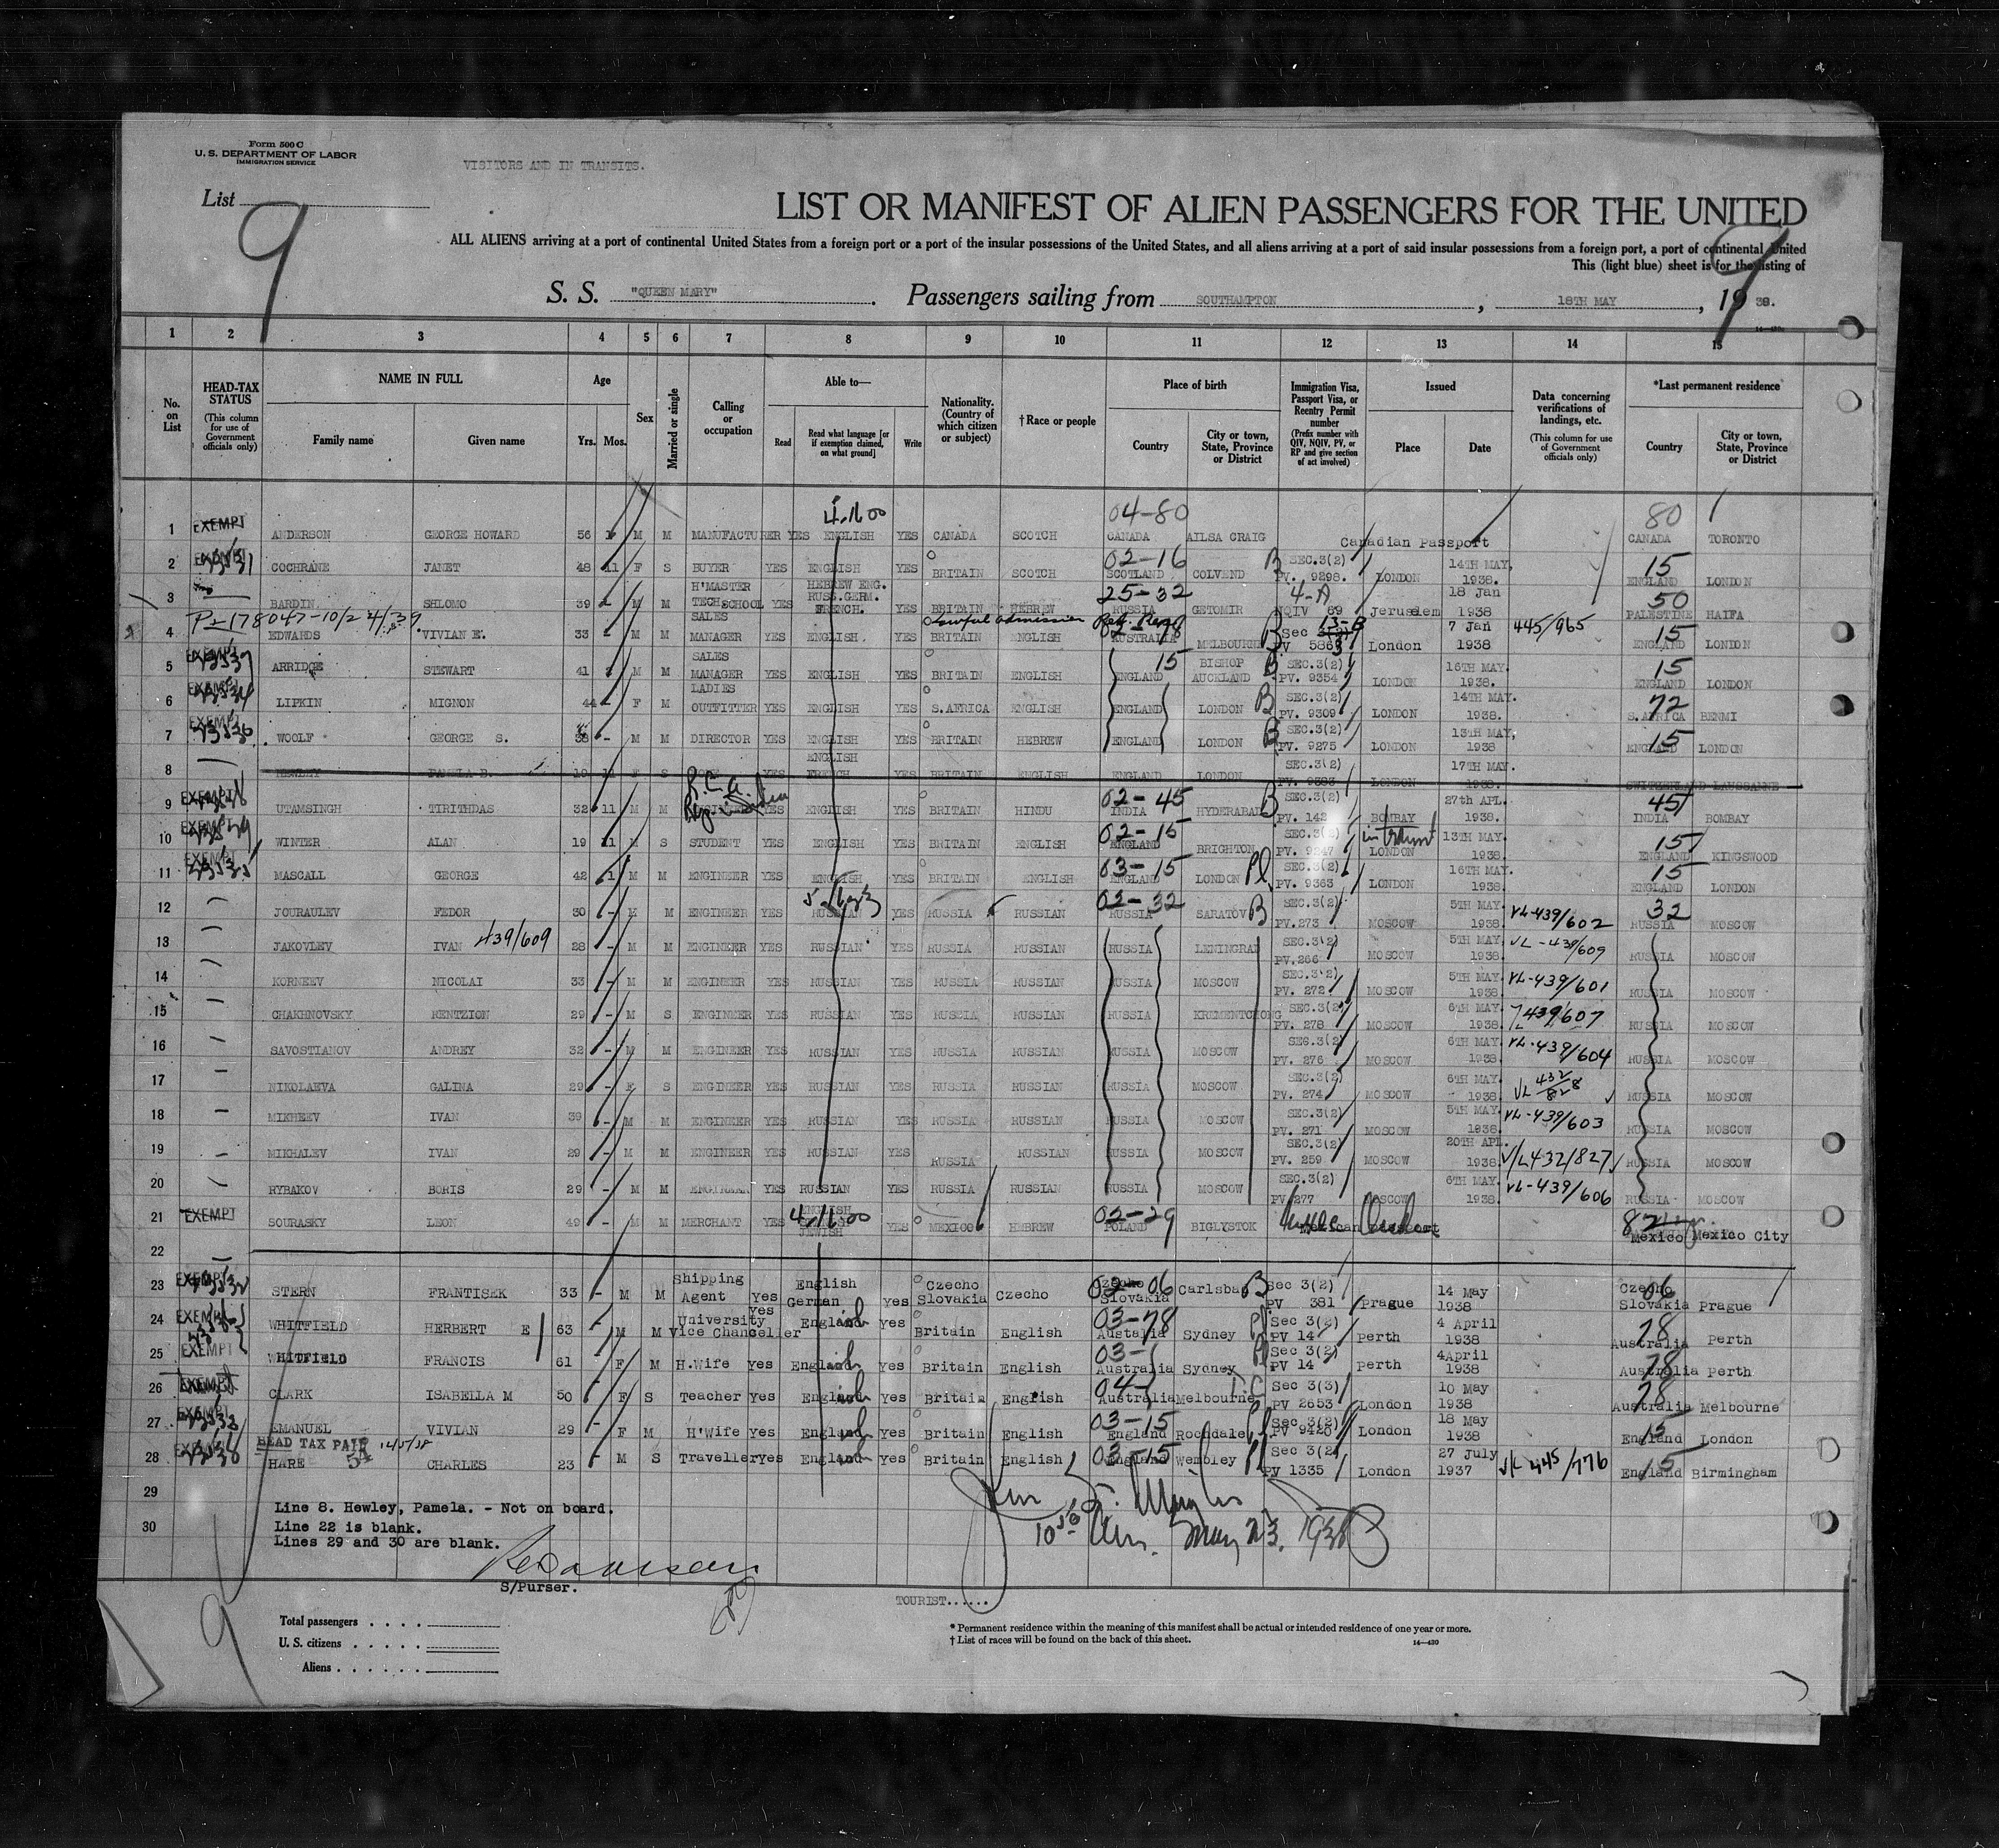 Form 500 C
U. S. DEPARTMENT OF LABOR
IMMIGRATION SERVICE
VISITORS AND IN TRANSITS.
List 9
LIST OR MANIFEST OF ALIEN PASSENGERS FOR THE UNITED
ALL ALIENS arriving at a port of continental United States from a foreign port or a port of the insular possessions of the United States, and all aliens arriving at a port of said insular possessions from a foreign port, a port of continental United
This (light blue) sheet is for the listing of
9
S. S. "QUEEN MARY" . Passengers sailing from SOUTHAMPTON , 18TH MAY , 19 38.
1 2 3 4 5 6 7 8 9 10 11 12 13 14 15
No. on List
HEAD-TAX STATUS (This column for use of Government officials only)
NAME IN FULL Family name Given name
Age Yrs. Mos.
Sex
Married or single
Calling or occupation
Able to— Read Read what language [or if exemption claimed, on what ground] Write
Nationality. (Country of which citizen or subject)
†Race or people
Place of birth Country City or town, State, Province or District
Immigration Visa, Passport Visa, or Reentry Permit number (Prefix number with QIV, NQIV, PV, or RP and give section of act involved)
Issued Place Date
Data concerning verifications of landings, etc. (This column for use of Government officials only)
*Last permanent residence Country City or town, State, Province or District
1 EXEMPT ANDERSON GEORGE HOWARD 56 M M MANUFACTURER YES ENGLISH YES CANADA SCOTCH 04-80 CANADA AILSA CRAIG Canadian Passport 80 CANADA TORONTO
2 EXEMPT COCHRANE JANET 48 11 F S BUYER YES ENGLISH YES BRITAIN SCOTCH 02-16 SCOTLAND COLVEND B SEC.3(2) PV. 9298. LONDON 14TH MAY, 1938. 15 ENGLAND LONDON
3 BARDIN SHLOMO 39 - M M H'MASTER TECH SCHOOL YES HEBREW ENG. RUSS. GERM. FRENCH. YES BRITAIN HEBREW 25-32 RUSSIA GETOMIR 4-A NQIV 69 Jerusalem 18 Jan 1938 50 PALESTINE HAIFA
P2-178047-10/24/39
4 EDWARDS VIVIAN E. 33 - M M SALES MANAGER YES ENGLISH. YES BRITAIN ENGLISH AUSTRALIA MELBOURNE B Sec 13-B PV 5863 London 7 Jan 1938 445/965 15 ENGLAND LONDON
5 EXEMPT ARRIDGE STEWART 41 M M SALES MANAGER YES ENGLISH YES BRITAIN ENGLISH 15 ENGLAND BISHOP AUCKLAND B SEC.3(2) PV. 9354 LONDON 16TH MAY. 1938. 15 ENGLAND LONDON
6 EXEMPT LIPKIN MIGNON 44 - F M LADIES OUTFITTER YES ENGLISH YES S.AFRICA ENGLISH ENGLAND LONDON B SEC.3(2) PV. 9309 LONDON 14TH MAY. 1938. 72 S.AFRICA BENMI
7 EXEMPT WOOLF GEORGE S. 38 - M M DIRECTOR YES ENGLISH YES BRITAIN HEBREW ENGLAND LONDON B SEC.3(2) PV. 9275 LONDON 13TH MAY, 1938 15 ENGLAND LONDON
8 HEWLEY PAMELA B. 19 11 F S YES ENGLISH FRENCH YES BRITAIN ENGLISH ENGLAND LONDON SEC.3(2) PV. 9383 LONDON 17TH MAY. 1938. SWITZERLAND LAUSSANNE
9 EXEMPT UTAMSINGH TIRITHDAS 32 11 M M YES ENGLISH YES BRITAIN HINDU 02-45 INDIA HYDERABAD B SEC.3(2) PV. 142 BOMBAY 27th APL. 1938. 45 INDIA BOMBAY
10 EXEMPT WINTER ALAN 19 11 M S STUDENT YES ENGLISH YES BRITAIN ENGLISH 02-15 ENGLAND BRIGHTON SEC.3(2) PV. 9247 in transit LONDON 13TH MAY. 1938. 15 ENGLAND KINGSWOOD
11 EXEMPT MASCALL GEORGE 42 1 M M ENGINEER YES ENGLISH YES BRITAIN ENGLISH 03-15 ENGLAND LONDON Pl SEC.3(2) PV. 9363 LONDON 16TH MAY. 1938. 15 ENGLAND LONDON
12 JOURAULEV FEDOR 30 - M M ENGINEER YES RUSSIAN YES RUSSIA RUSSIAN 02-32 RUSSIA SARATOV B SEC.3(2) PV.273 MOSCOW 5TH MAY. 1938. VL-439/602 32 RUSSIA MOSCOW
13 JAKOVLEV IVAN 439/609 28 - M M ENGINEER YES RUSSIAN YES RUSSIA RUSSIAN RUSSIA LENINGRAD SEC.3(2) PV.266 MOSCOW 5TH MAY. 1938. VL-439/609 RUSSIA MOSCOW
14 KORNEEV NICOLAI 33 - M M ENGINEER YES RUSSIAN YES RUSSIA RUSSIAN RUSSIA MOSCOW SEC.3(2) PV. 272 MOSCOW 5TH MAY. 1938. VL-439/601 RUSSIA MOSCOW
15 CHAKHNOVSKY RENTZION 29 - M S ENGINEER YES RUSSIAN YES RUSSIA RUSSIAN RUSSIA KREMENTCHONG SEC.3(2) PV. 278 MOSCOW 6TH MAY. 1938. 439/607 RUSSIA MOSCOW
16 SAVOSTIANOV ANDREY 32 - M M ENGINEER YES RUSSIAN YES RUSSIA RUSSIAN RUSSIA MOSCOW SEC.3(2) PV. 276 MOSCOW 6TH MAY. 1938. VL-439/604 RUSSIA MOSCOW
17 NIKOLAEVA GALINA 29 - F S ENGINEER YES RUSSIAN YES RUSSIA RUSSIAN RUSSIA MOSCOW SEC.3(2) PV. 274 MOSCOW 6TH MAY. 1938. VL 432/828 RUSSIA MOSCOW
18 MIKHEEV IVAN 39 - M M ENGINEER YES RUSSIAN YES RUSSIA RUSSIAN RUSSIA MOSCOW SEC.3(2) PV. 271 MOSCOW 5TH MAY. 1938. VL-439/603 RUSSIA MOSCOW
19 MIKHALEV IVAN 29 - M M ENGINEER YES RUSSIAN YES RUSSIA RUSSIAN RUSSIA MOSCOW SEC.3(2) PV. 259 MOSCOW 20TH APL. 1938. V/L432/827 RUSSIA MOSCOW
20 RYBAKOV BORIS 29 - M M ENGINEER YES RUSSIAN YES RUSSIA RUSSIAN RUSSIA MOSCOW SEC.3(2) PV 277 MOSCOW 6TH MAY. 1938. VL-439/606 RUSSIA MOSCOW
21 EXEMPT SOURASKY LEON 49 - M M MERCHANT YES ENGLISH JEWISH YES MEXICO HEBREW 02-29 POLAND BIGLYSTOK Mexican passport 82 Mexico Mexico City
22
23 EXEMPT STERN FRANTISEK 33 - M M Shipping Agent Yes English German Yes Czecho Slovakia Czecho 02-06 Czecho Slovakia Carlsbad B Sec 3(2) PV 381 Prague 14 May 1938 06 Czecho Slovakia Prague
24 EXEMPT WHITFIELD HERBERT E 63 - M M University Vice Chanceller yes England Yes Britain English 03-78 Austalia Sydney Pl Sec 3(2) PV 14 Perth 4 April 1938 78 Australia Perth
25 EXEMPT WHITFIELD FRANCIS 61 F M H.Wife Yes England Yes Britain English 03- Australia Sydney Pl Sec 3(2) PV 14 perth 4April 1938 78 Australia Perth
26 EXEMPT CLARK ISABELLA M 50 F S Teacher yes England Yes Britain English 04- Australia Melbourne Sec 3(3) PV 2653 London 10 May 1938 78 Australia Melbourne
27 EXEMPT EMANUEL VIVIAN 29 - F M H'Wife yes England Yes Britain English 03-15 England Rochdale Pl Sec 3(2) PV 9420 London 18 May 1938 15 England London
HEAD TAX PAID
28 EXEMPT HARE CHARLES 23 - M S Traveller yes England Yes Britain English 03-15 England Wembley Pl Sec 3(2) PV 1335 London 27 July 1937 V/L 445/776 15 England Birmingham
29
30
Line 8. Hewley, Pamela. - Not on board.
Line 22 is blank.
Lines 29 and 30 are blank.
10 50 Am. May 23, 1938
S/Purser.
TOURIST......
Total passengers . . . .
U. S. citizens . . . . .
Aliens . . . . . .
* Permanent residence within the meaning of this manifest shall be actual or intended residence of one year or more.
† List of races will be found on the back of this sheet.
14—420
9